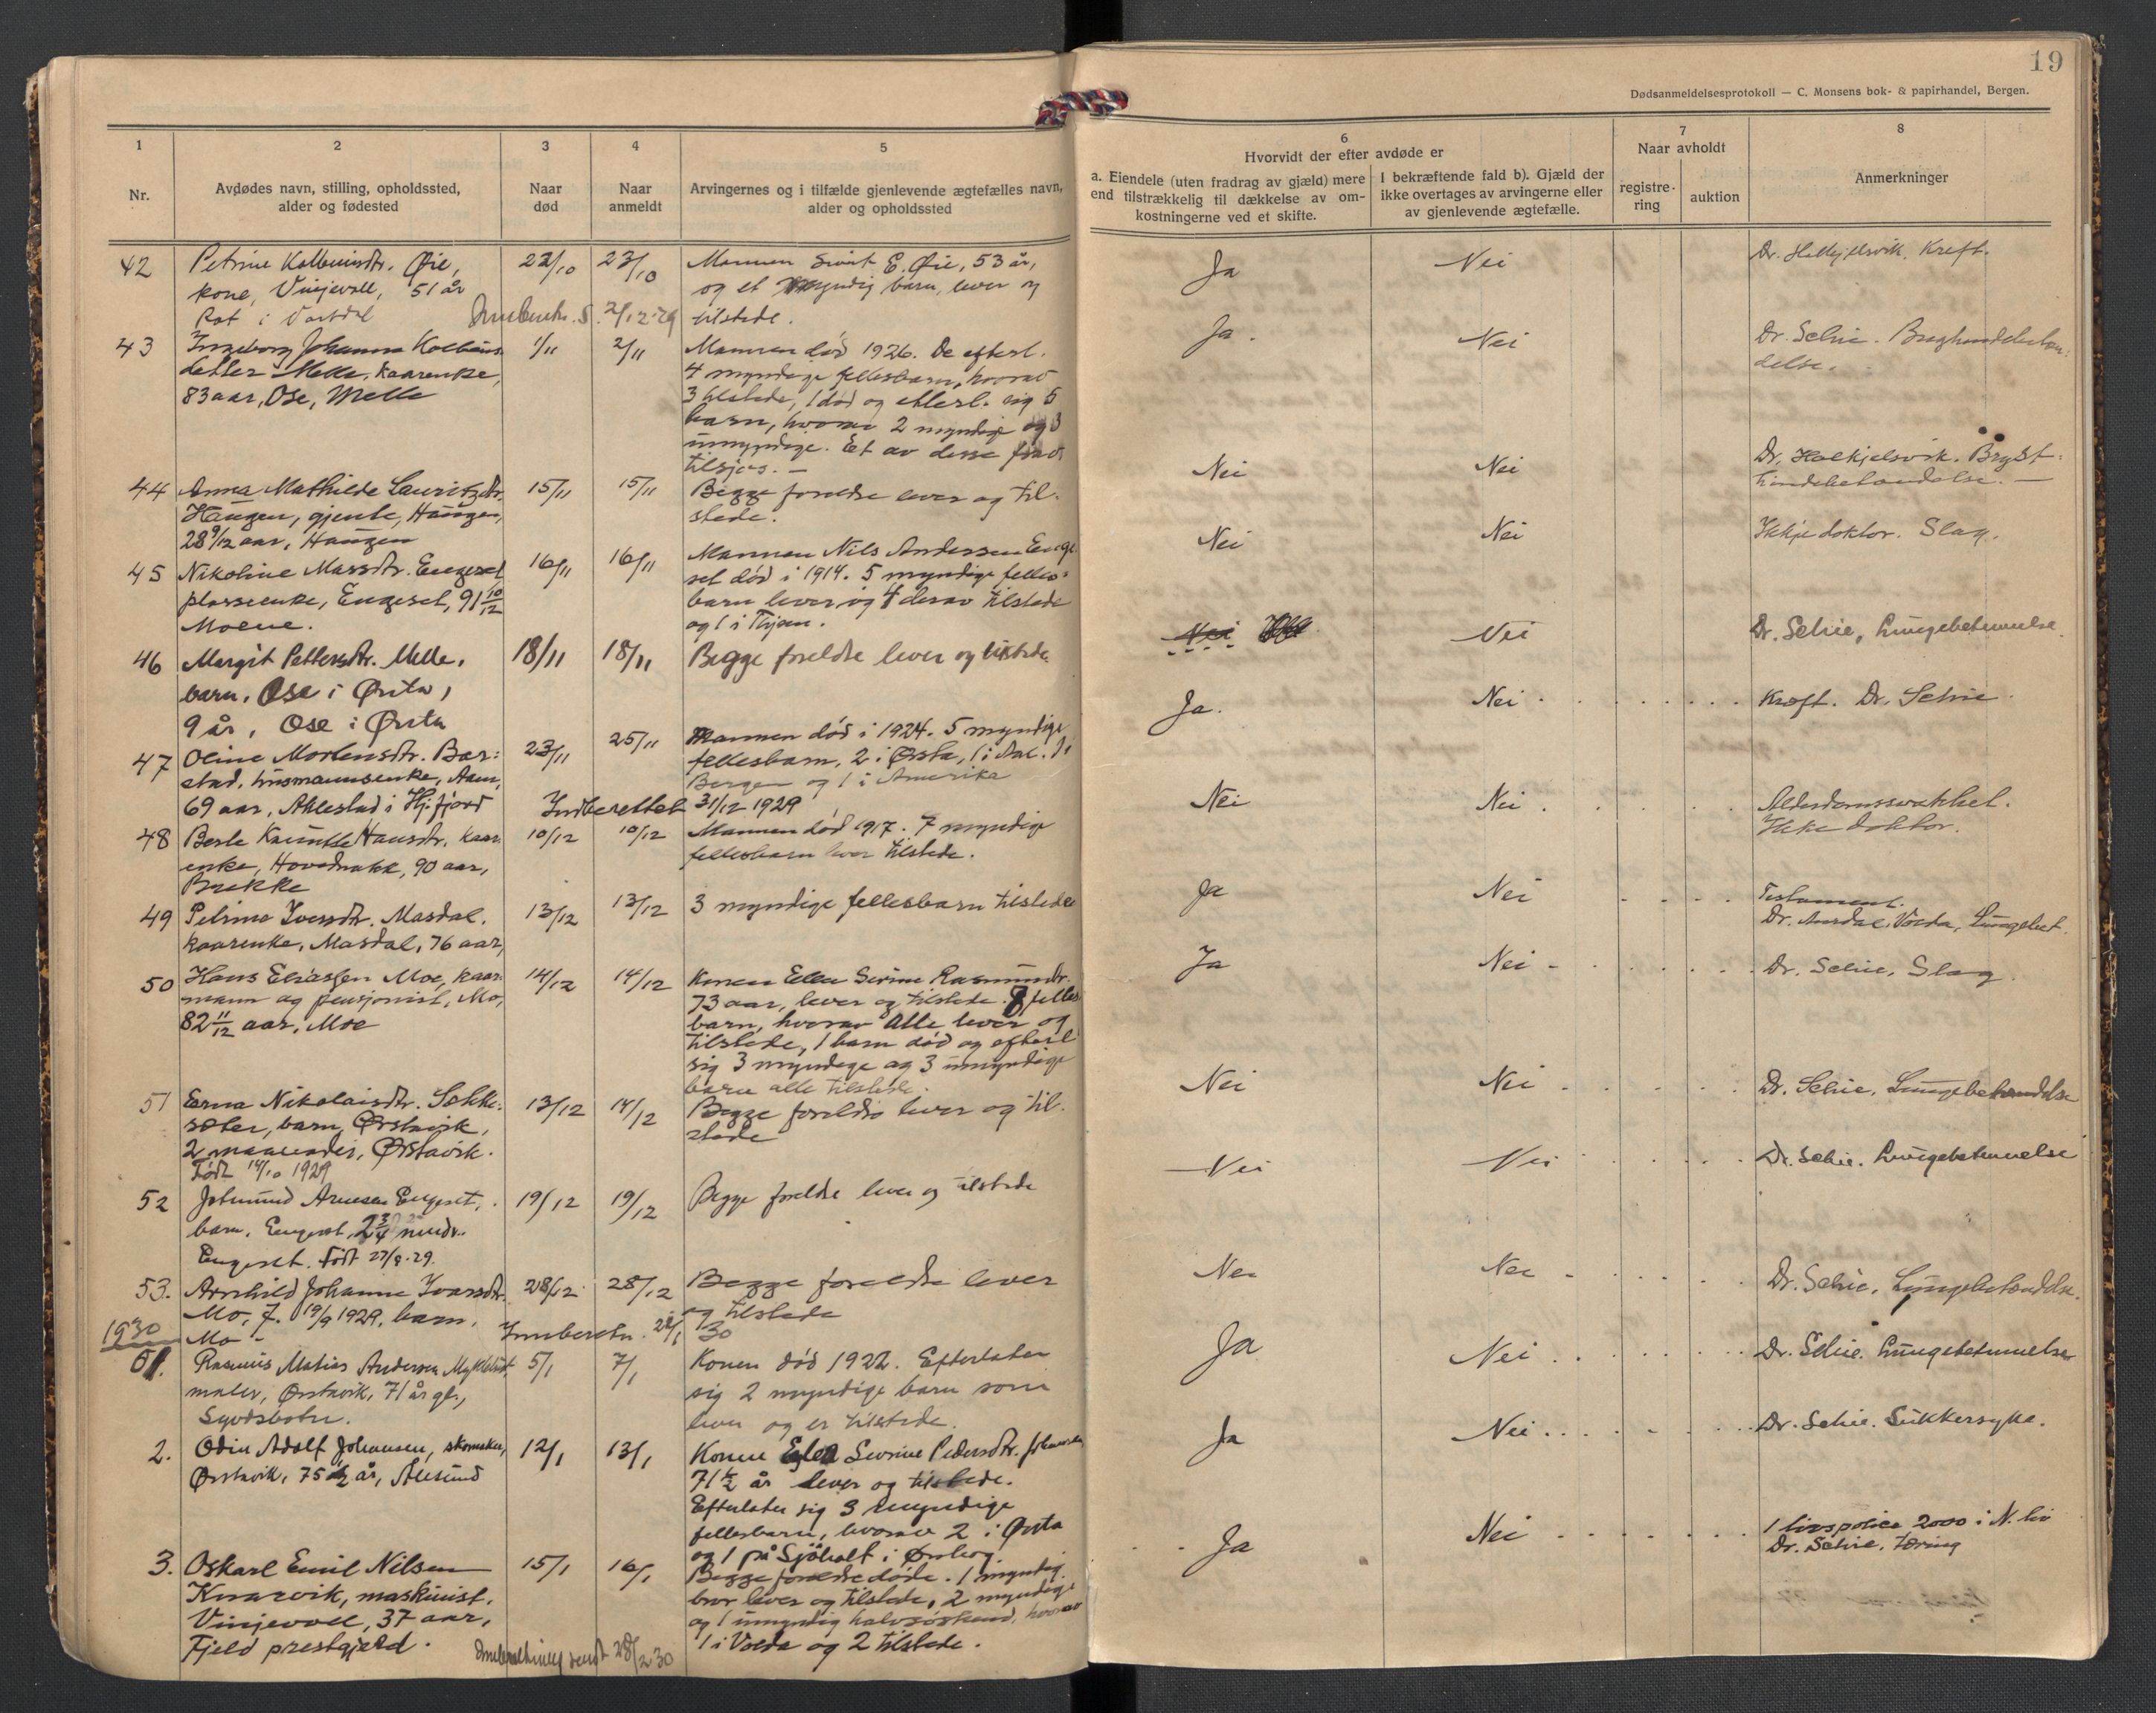 19
Dødsanmeldelsesprotokoll — C. Monsens bok- & papirhandel, Bergen.
1
Nr.
2
Avdødes navn, stilling, opholdssted,
alder og fødested
3
Naar
død
4
Naar
anmeldt
5
Arvingernes og i tilfælde gjenlevende ægtefælles navn,
alder og opholdssted
6
Hvorvidt der efter avdøde er
a. Eiendele (uten fradrag av gjæld) mere
end tilstrækkelig til dækkelse av om-
kostningerne ved et skifte.
I bekræftende fald b). Gjæld der
ikke overtages av arvingerne eller
av gjenlevende ægtefælle.
7
Naar avholdt
registre-
ring
auktion
8
Anmerkninger
42
Petrine Kolbeinsdtr. Øie,
kone, Vinjevoll, 51 år
Rot i Vartdal
22/10
23/10
Mannen Sivert E. Øie, 53 år,
og et myndig barn, lever og
tilstede.
Ja
Nei
Kreft.
2/12-29
43
Ingeborg Johanna Kolbeins
datter Melle, kaarenke,
83 aar, Ose, Melle
1/11
2/11
Mannen død 1926. De efterl.
4 myndige fellesbarn, hvorav
3 tilstede, 1 død og efterl. sig 5
barn, hvorav 2 myndige og 3
umyndige. Et av desse
tilsjøs. —
Ja.
Nei
Dr. Schie.
44
Anna Mathilde Lauritzdtr.
Haugen, gjente, Haugen,
28 9/12 aar, Haugen
15/11
15/11
Begge foreldre lever og til-
stede.
Nei
Nei
Dr. Holkjelsvik. Bryst-
hindebetændelse. —
45
Nikoline Massdtr. Engeset
plassenke, Engeset, 91 10/12
Moene.
16/11
16/11
Mannen Nils Andersen Enge
set død i 1914. 5 myndige felles-
barn lever og 4 derav tilstede
og 1 i
Nei
Nei
Ikkje doktor. Slag.
46
Margit Pettersdtr. Melle,
barn, Ose i Ørsta,
9 år, Ose i Ørsta
18/11
18/11
Begge foreldre lever og tilstede.
Nei
Nei
Dr. Schie, Lungebetennelse
47
Oline Mortensdtr. Bar-
stad, husmannsenke, Aam,
69 aar, Aklestad i Hj.fjord
23/11
25/11
Mannen død i 1924. 5 myndige
fellesbarn, 2 i Ørsta, 1 i Aal. 1 i
Bergen og 1 i Amerika
Ja.
Nei
Kreft. Dr. Schie
Indberettet 31/12 1929
48
Berte Hansdtr. kaar
enke, Hovdenakk, 90 aar,
Brekke
10/12
10/12
Mannen død 1917. 7 myndige
fellesbarn hver tilstede.
Nei
Nei
Alderdomssvakhet.
Ikke doktor.
49
Petrine Iversdtr. Masdal,
kaarenke, Masdal, 76 aar,
13/12
13/12
3 myndige fellesbarn tilstede
Ja
Nei
Testament.
Dr. Aardal, Volda, Lungebet.
50
Hans Eliassen Moe, kaar-
mann og pensjonist, Mo,
82 11/12 aar, Moe
14/12
14/12
Konen Ellen Serine Rasmusdtr.
73 aar, lever og tilstede. 8 felles
barn, hvorav alle lever og
tilstede, 1 barn død og efterl
sig 3 myndege og 3 umyndige
barn alle tilstede.
Ja
Nei
Dr. Schie. Slag
51
Erna Nikolaisdtr. Sekke-
sæter, barn, Ørstavik,
2 maaneder, Ørstavik.
Født 14/10 1929
13/12
14/12
Begge foreldre lever og til-
stede
Nei
Nei
Dr. Schie, Lungebetændelse
52
Arnesen Engeset,
barn, Engeset, 2 3/4 mndr.
Engeset. Født 27/9-29.
19/12
19/12
Begge foreldre lever og tilstede
Nei
Nei
Dr. Schie. Lungebetennelse
53.
Arnhild Johanne Ivarsdtr.
Mo, f. 19/9 1929, barn,
Mo -
28/12
28/12
Begge foreldre lever
og tilstede
Nei
Nei
Dr. Schie, Lungebetændelse.
Innberetn. 30
1930
1.
Rasmus Matias Andersen Myklebust,
maler, Ørstavik, 71 år gl.,
5/1
7/1
Konen død 1922. Efterlater
sig 2 myndige barn som
lever og er tilstede.
Ja
Nei
Dr. Schie. Lungebetennelse
2.
Odin Adolf Johansen, skomaker,
Ørstavik, 75 1/2 år, Ålesund
12/1
13/1
Konen Severine Pedersdtr. Johansen
71 1/2 år lever og tilstede.
Efterlater sig 3 myndige
fellesbarn, hvorav 2 i Ørsta
og 1 på Sjøholt i Ørskog.
Ja
Nei
Dr. Schie. Sukkersyke.
3.
Oskarl Emil Nilsen
Knarvik, maskinist,
Vinjevoll, 37 aar,
Fjeld prestgjeld.
15/1
16/1
Begge foreldre døde. 1 myndig
bror lever og tilstede, 2 myndige
og 1 umyndig halvsøskend, hvorav
1 i Volda og 2 tilstede.
Ja
Nei
1 livspolice 2000 i N. liv
Dr. Schie. Tæring
Innberetning sendt 28/2-30